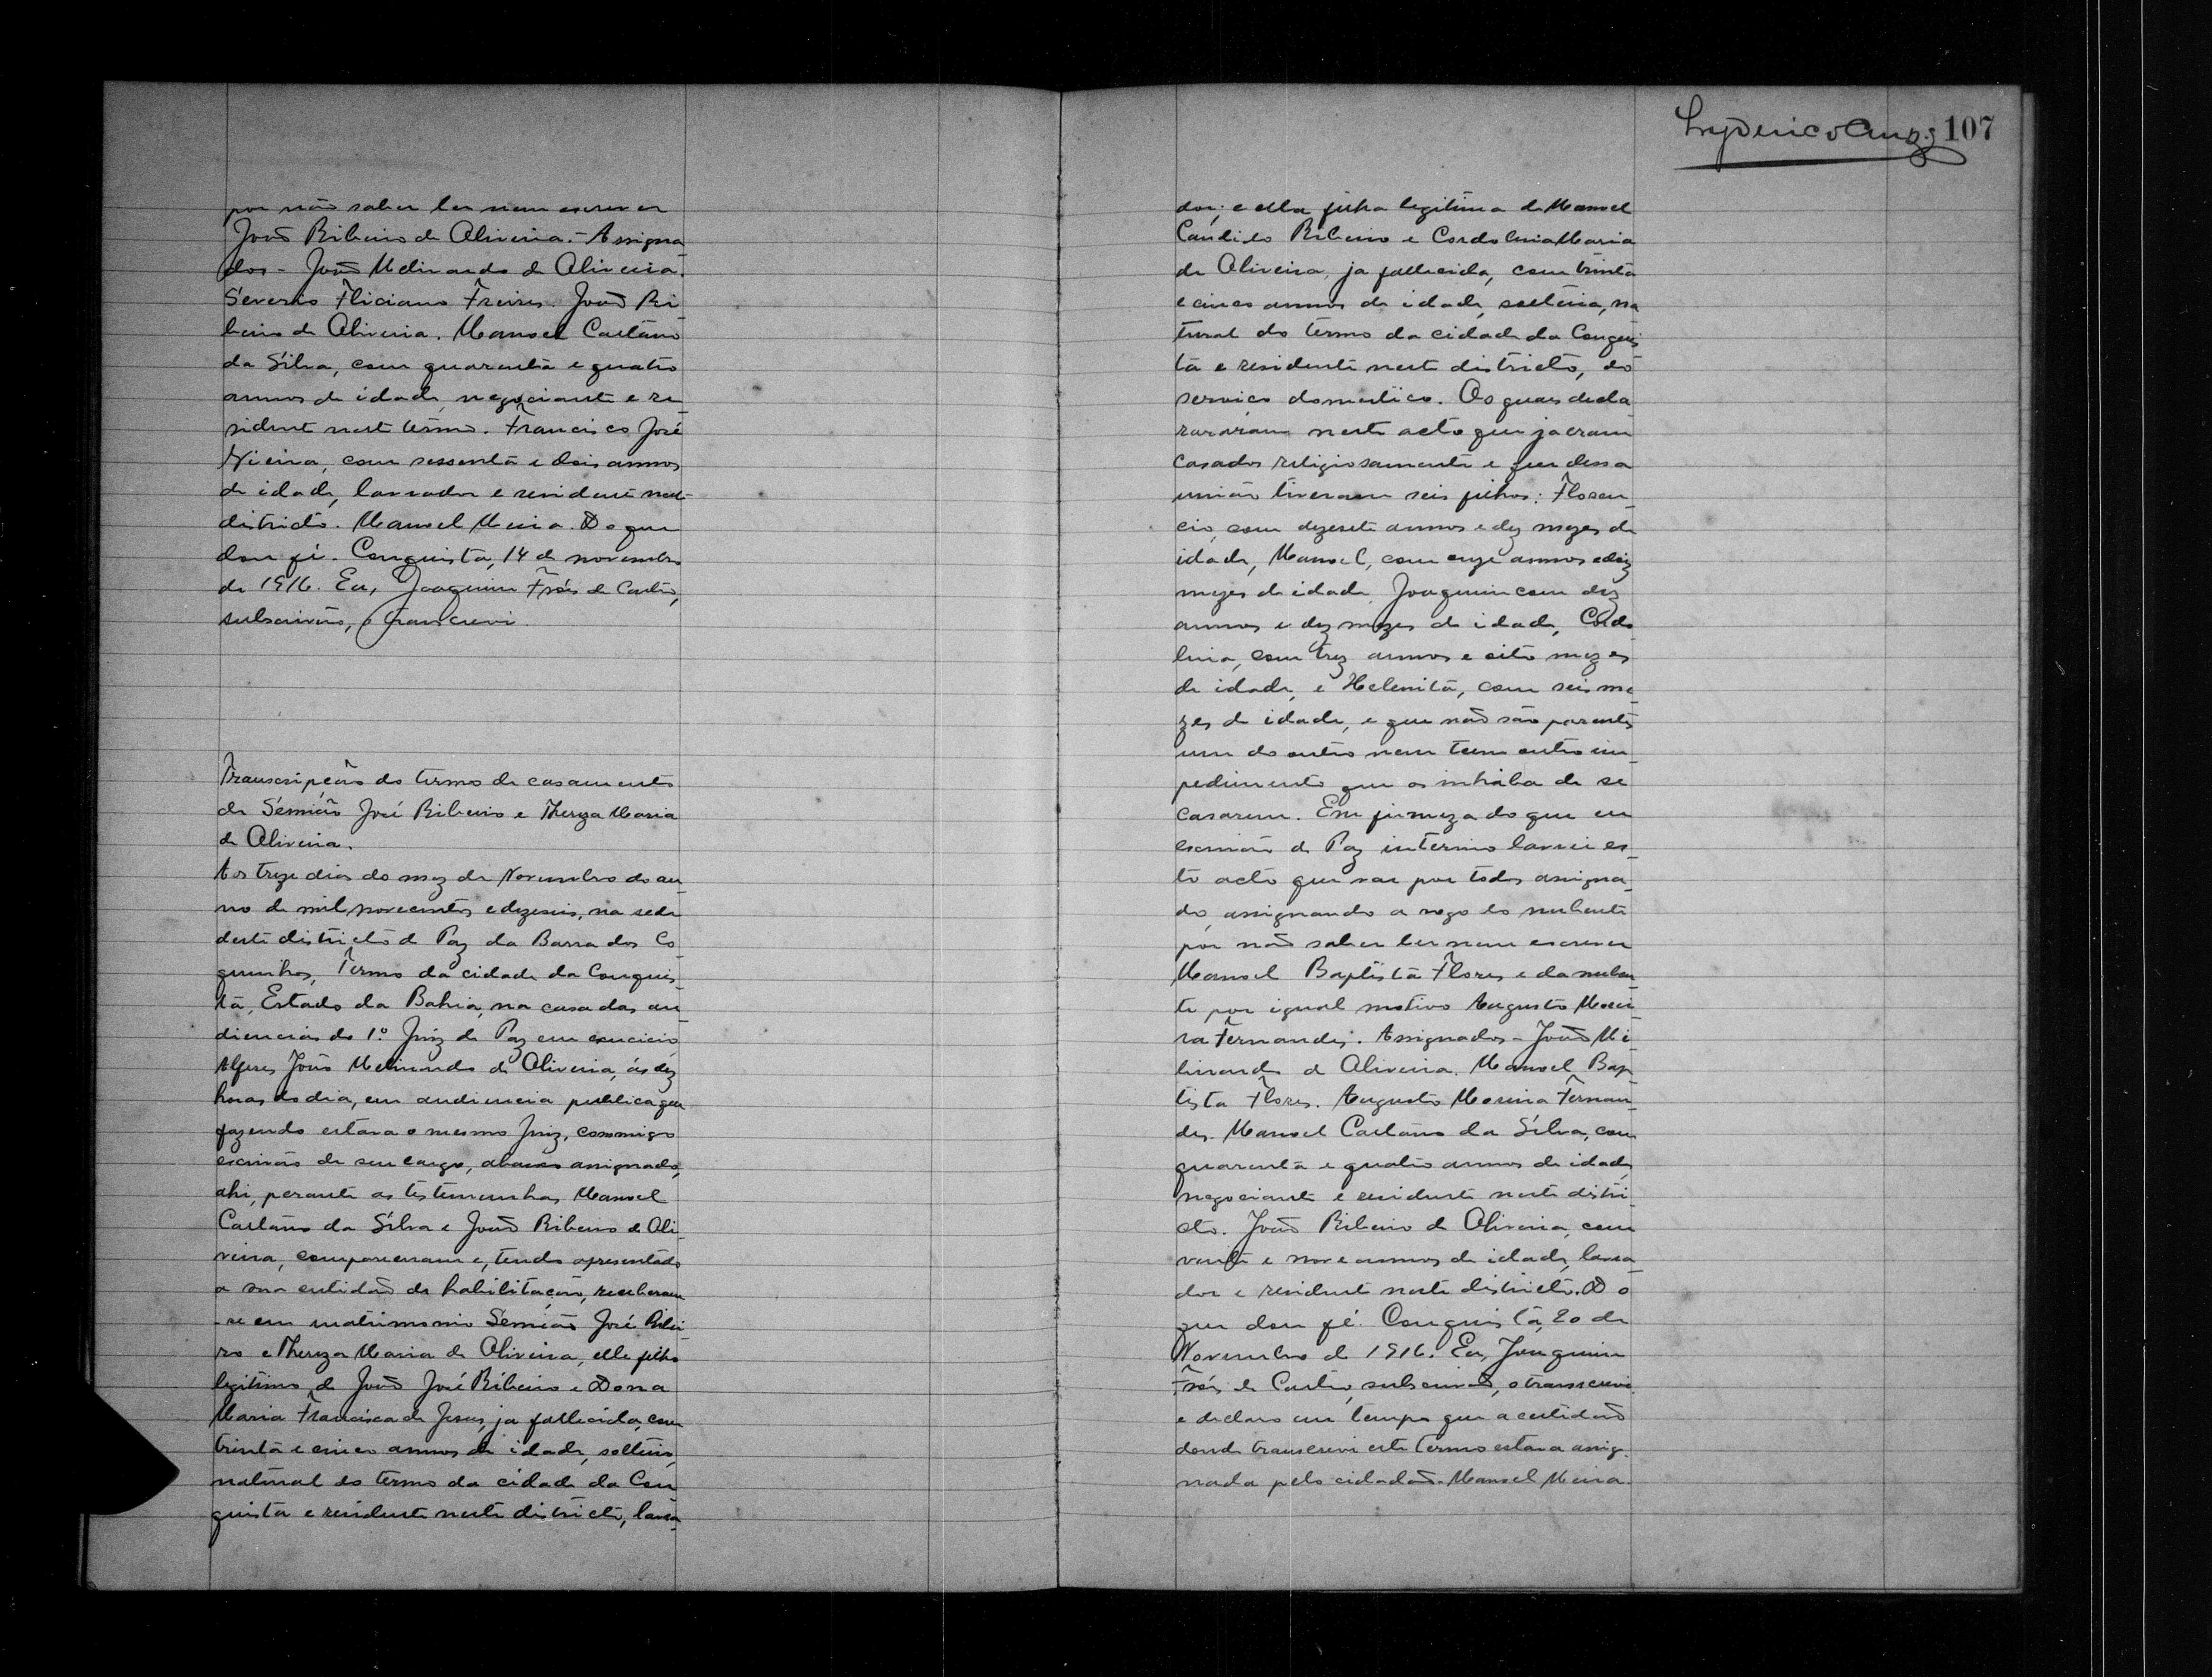 por não saber ler nem escrever
João Ribeiro de Oliveira. - Assigna
dos - João Melinardo de Oliveira.
Severio Fliciano Freires. João Ri
beiro de Oliveira. Manoel Caetano
da Silva, com quarenta e quatro
annos de idade, negociante e re
sidente neste termo. Francisco José
Vieira, com sessenta e dois annos
de idade, lavrador e residente nest
districto. Manoel Meira. Do que
dou fé. Conquista, 14 de novembro
de 1916. Eu, Joaquim Fróis de Castro,
subscrivão, o transcrevi.
Transcripção do termo de casamento
de Semião José Ribeiro e Thereza Maria
de Oliveira.
Aos treze dias do mez de Novembro do an
no de mil novecentos e dezeseis, na sede
deste districto de Paz da Barra dos Co
quinhos, Termo da cidade da Conquis
ta, Estado da Bahia, na casa das au
diencias do 1º Juiz de Paz em exercicio
Alferes João Melinardo de Oliveira, ás dez
horas do dia, em audiencia publica que
fazendo estava o mesmo Juiz, commigo
escrivão de seu cargo, abaixo assignado,
ahi, perante as testemunhas Manoel
Caetano da Silva e João Ribeiro de Oli
veira, compareceram e, tendo apresentado
a sua certidão de habilitação, receberam
-se em matrimonio Semião José Ribei
ro e Thereza Maria de Oliveira, elle filho
legitimo de João José Ribeiro e Dona
Maria Francisca de Jesus, ja fallecida, com
trinta e cinco annos de idade, solteiro,
natural do termo da cidade da Con
quista e residente neste districto, lavra
Lyderico Cruz 107
dor; e ella filha legitima de Manoel
Candido Ribeiro e Cordolina Maria
de Oliveira, ja fallecida, com trinta
e cinco annos de idade, solteira, na
tural do termo da cidade da Conquis
ta e residente neste districto, do
serviço domestico. Os quaes decla
rararam neste acto que ja eram
casados religiosamente e que dessa
união tiveram seis filhos: Floren
cio, com dezesete annos e dez mezes de
idade, Manoel, com onze annos e dez
mezes de idade, Joaquim com dez
annos e dez mezes de idade, Cordo
lina, com trez annos e oito mezes
de idade, e Helenita, com seis me
zes de idade, e que não são parentes
um do outro nem teem outro im
pedimento que os iniba de se
casarem. Em firmeza do que eu
escrivão de Paz interino lavrei es
te acto que vae por todos assigna
do, assignando a rogo do nubente
por não saber ler nem escrever
Manoel Baptista Flores e da nuben
te por igual motivo Augusto Morei
ra Fernandes. Assignados - João Me
linardo de Oliveira. Manoel Bap
tista Flores. Augusto Moreira Fernan
des. Manoel Caetano da Silva, com
quarenta e quatro annos de idade,
negociante e residente neste distri
cto. João Ribeiro de Oliveira, com
vinte e nove annos de idade, lavra
dor e residente neste districto. Do
que dou fé. Conquista, 20 de
Novembro de 1916. Eu, Joaquim
Fróis de Castro, subscrivão, o transcrevi
e declaro em tempo que a certidão
donde transcrevi este termo estava assig
nada pelo cidadão - Manoel Meira.